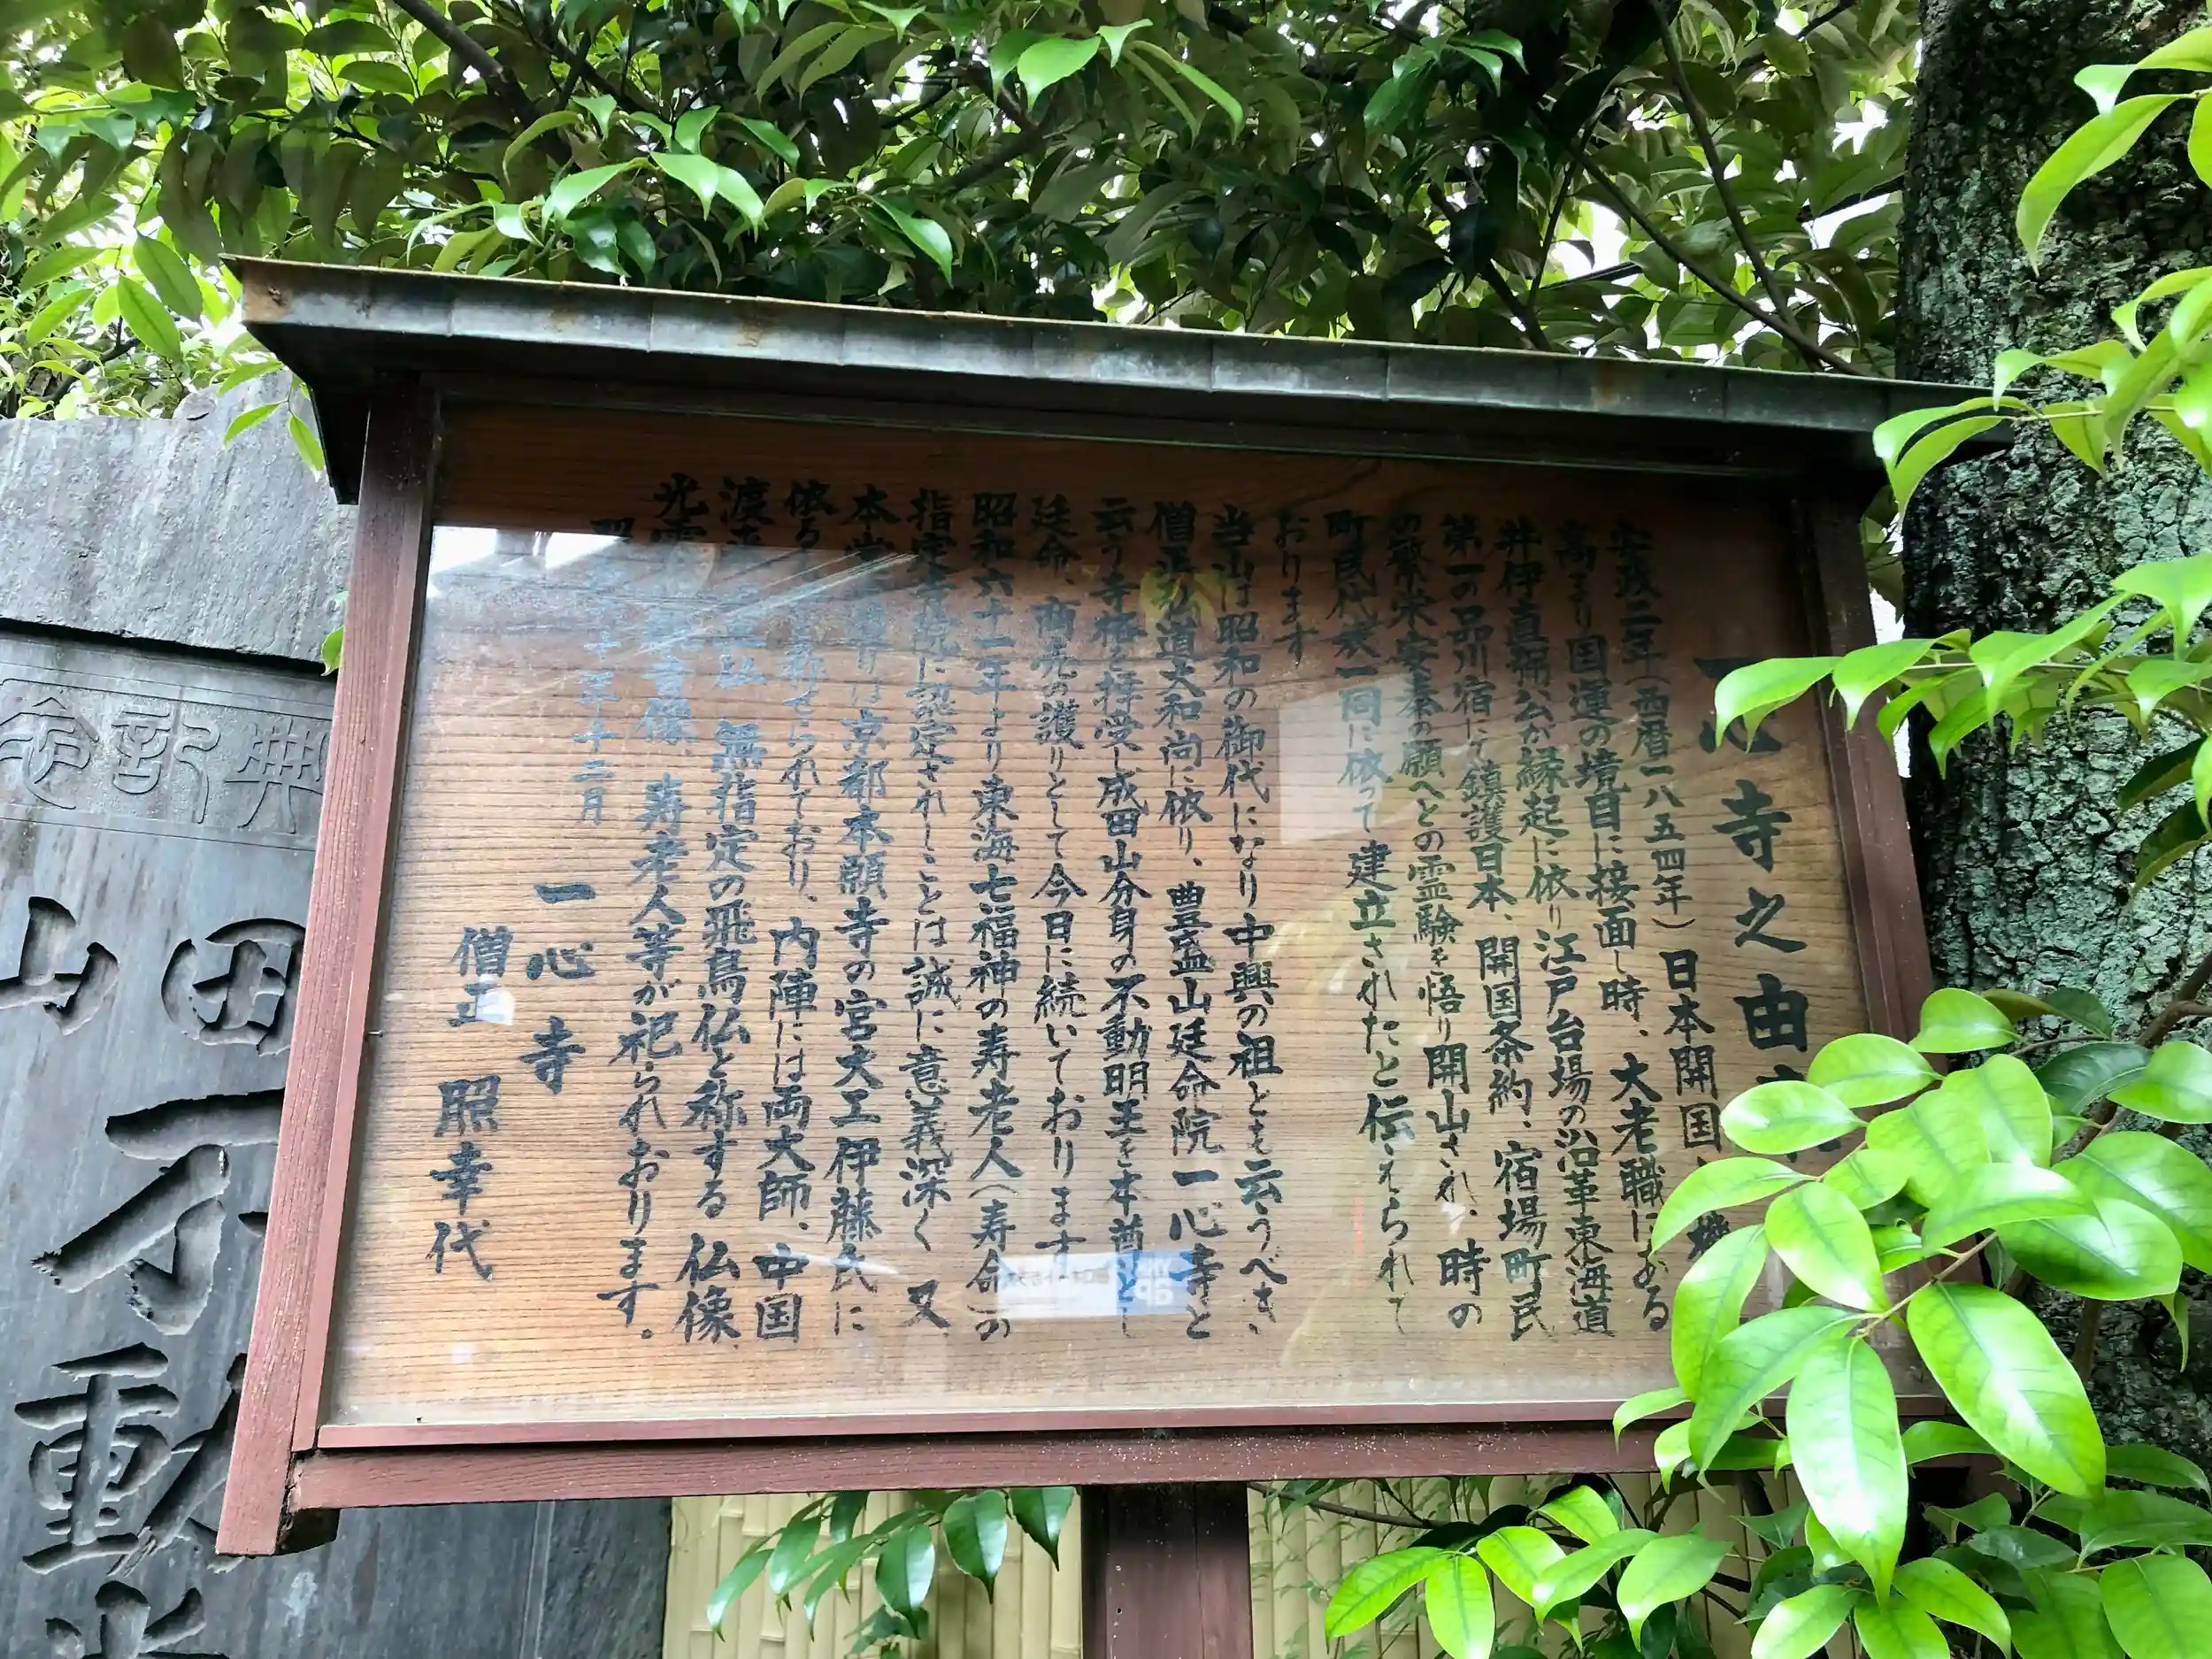 一心寺之由来
安政二年（西暦一八五四年）日本開国
高まり国運の境目に接面し時、大老職にある
井伊直弼公が縁起に依り江戸台場の沿革東海道
第一の品川宿にて鎮護日本、開国条約、宿場町民
の繁栄安泰の願へとの霊験を悟り開山され、時の
町民代衆一同に依って建立されたと伝えられて
おります
当山は昭和の御代になり中興の祖とも云うべき、
僧正弘道大和尚に依り、豊盛山延命院一心寺と
云う寺格を拝受し成田山分身の不動明王を本尊とし
延命、商売の護りとして今日に続いております
昭和六十一年より東海七福神の寿老人（寿命）の
指定寺院に認定されしことは誠に意義深く又
本堂は京都本願寺の宮大工伊藤氏に
依る称せられており、内陣には両大師、中国
渡来仏 無指定の飛鳥仏と称する仏像、
光雲 観音像、寿老人等が祀られおります。
十二月
一心寺
僧正 照幸代
典記念
田山
不動